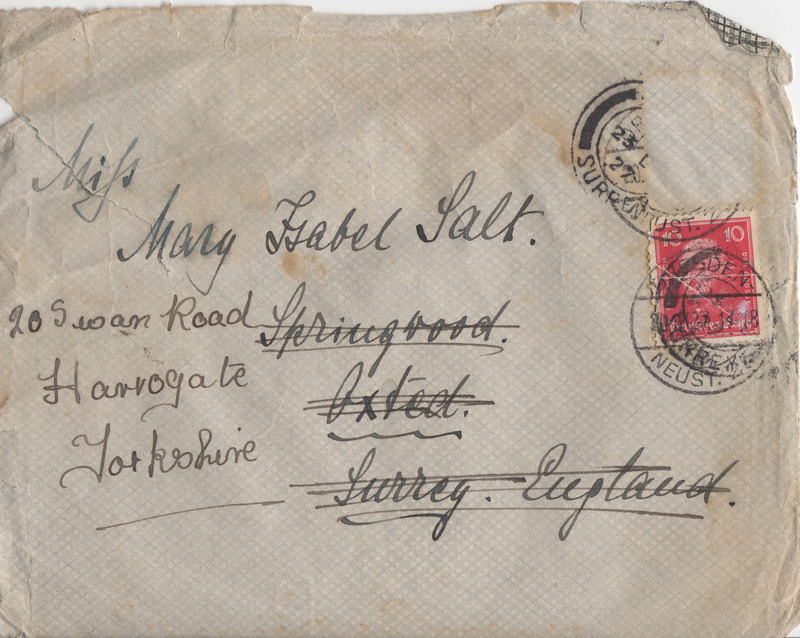 Miss
Mary Isabel Salt.
20 Swan Road
Harrogate
Yorkshire
Springwood.
Oxted.
Surrey. England.
23
27
SURREY
NEUST.
10 10
DRESDEN
NEUST.